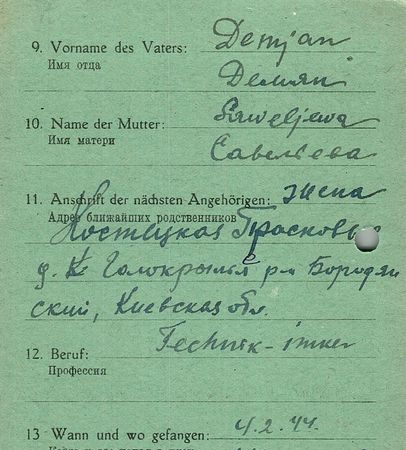 9. Vorname des Vaters: Demjan
Имя отца Демян
10. Name der Mutter: Saweljewa
Имя матери Савельева
11. Anschrift der nächsten Angehörigen: жена
Адрес ближайших родственников
Костецкая
д. р-н Бородян
ский, Киевская обл.
Technik-
12. Beruf:
Профессия
13 Wann und wo gefangen: 4.2.44.